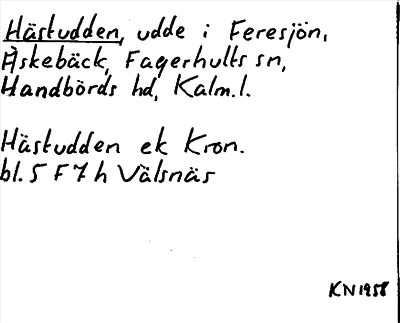 Hästudden, udde i Feresjön,
Åskebäck, Fagerhults sn,
Handbörds hd, Kalm.l.
Hästudden ek Kron.
bl. 5 F 7 h Välsnäs
KN 1958